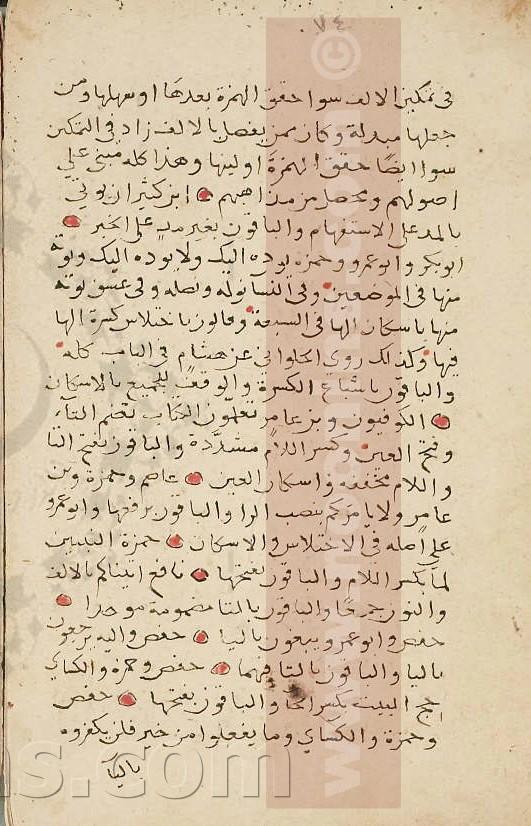 ٧٤
في تمكين الالف سوا حقق الهمزة بعدها او سهلها ومن
جعلها مبدلة وكان ممن يفصل بالالف زاد في التمكين
سوا ايضا حقق الهمزة او لينها وهذا كله مبني على
اصولهم ومحصل من مذاهبهم ابن كثير ان يوتى
بالمد على الاستفهام والباقون بغير مد على الخبر
ابو بكر وابو عمرو وحمزة يوده اليك ولا يوده اليك ونوته
منها في الموضعين وفي النسا نوله ونصله وفي عسق نوته
منها باسكان الها في السبعة وقالون باختلاس كسرة الها
فيها وكذلك روى الحلواني عن هشام في الباب كله
والباقون باشباع الكسرة والوقف للجميع بالاسكان
الكوفيون وبن عامر تعلمون الكتاب بضم التآء
وفتح العين وكسر اللام مشددة والباقون بفتح التا
واللام مخففة واسكان العين عاصم وحمزة وبن
عامر ولا يامركم بنصب الرا والباقون برفعها وابو عمرو
على اصله في الاختلاس والاسكان حمزة النبيين
لما بكسر اللام والباقون بفتحها نافع اتيناكم بالالف
والنون جمعا والباقون بالتا مضمومة موحدا
حفص وابو عمرو يبغون باليا حفص واليه يرجعون
باليا والباقون بالتا فيهما حفص وحمزة والكساي
حج البيت بكسر الحا والباقون بفتحها حفص
وحمزة والكساي وما يفعلوا من خير فلن يكفروه
باليا
ns.com